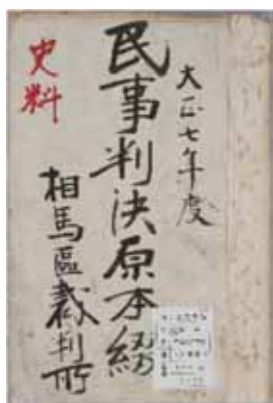 大正七年度
民事判決原本綴
相馬區裁判所
史料